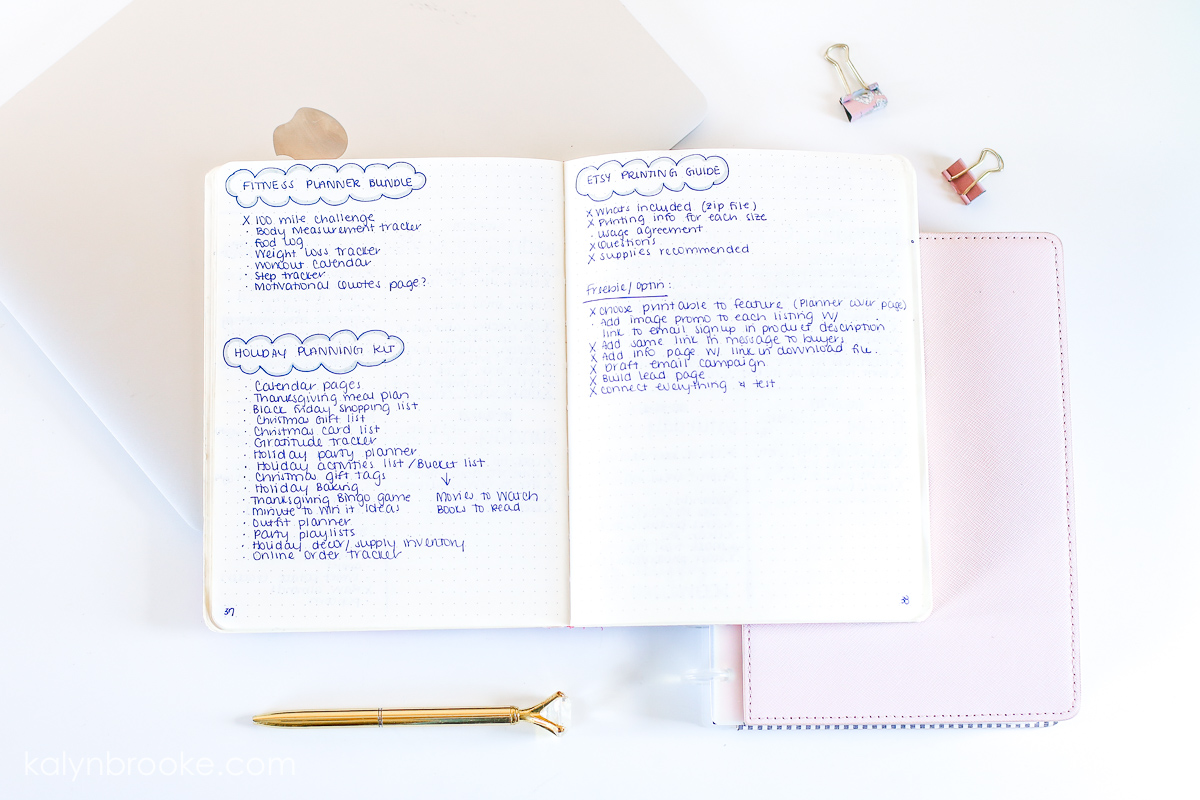 FITNESS PLANNER BUNDLE
X 100 mile challenge
· Body Measurement tracker
· Food log
· Weight loss tracker
· Workout calendar
· Step tracker
· Motivational Quotes page?
HOLIDAY PLANNING KIT
· Calendar pages
· Thanksgiving meal plan
· Black Friday shopping list
· Christmas Gift list
· Christmas card list
· Gratitude tracker
· Holiday party planner
· Holiday activities list / Bucket list
· Christmas gift tags
· Holiday Baking
· Thanksgiving Bingo game
· Minute to Win it Ideas
↓
Movies to Watch
Books to Read
· Outfit planner
· Party playlists
· Holiday decor / supply inventory
· Online order tracker
37
ETSY PRINTING GUIDE
X Whats included (zip file)
X Printing info for each size
· usage agreement
X Questions
X supplies recommended
Freebie / Optin:
X choose printable to feature (Planner cover page)
· Add image promo to each listing w/
link to email signup in product description
X Add same link in message to buyers
X Add info page w/ link in download file.
X Draft email campaign
X Build lead page
X connect everything & test
38
kalynbrooke.com